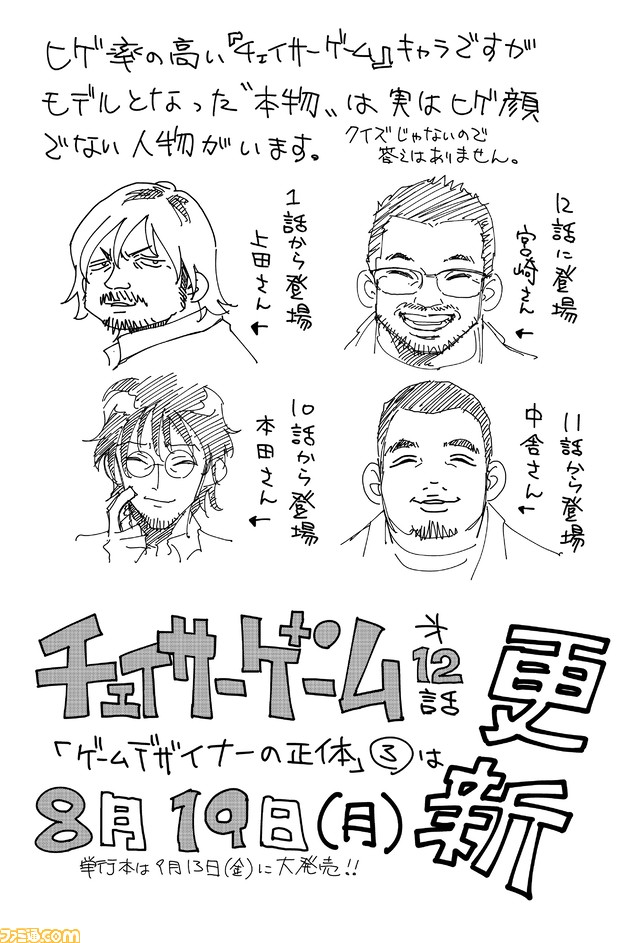 ヒゲ率の高い『チェイサーゲーム』キャラですが
モデルとなった〝本物〟は実はヒゲ顔
でない人物がいます。
クイズじゃないので
答えはありません。
1話から登場
上田さん←
12話に登場
宮崎さん←
10話から登場
本田さん←
11話から登場
中舎さん←
チェイサーゲーム
オ12話
更新
「ゲームデザイナーの正体」③は
8月19日(月)
単行本は9月13日(金)に大発売!!
ファミ通.com